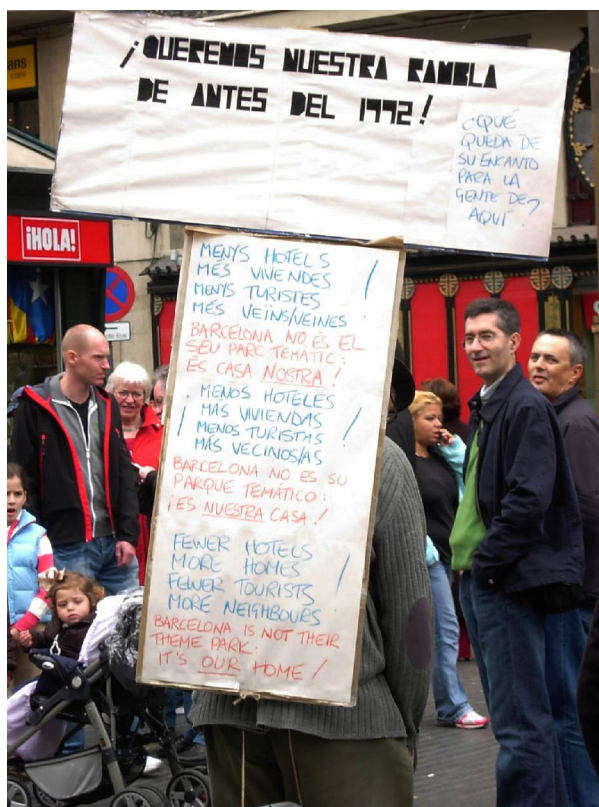 ¡QUEREMOS NUESTRA RAMBLA
DE ANTES DEL 1992!
¿QUÉ
QUEDA DE
SU ENCANTO
PARA LA
GENTE DE
AQUÍ?
ans
¡HOLA!
MENYS HOTELS
MÉS VIVENDES
MENYS TURISTES
MÉS VEÏNS/VEINES !
BARCELONA NO ÉS EL
SEU PARC TEMÀTIC:
ÉS CASA NOSTRA!
MENOS HOTELES
MÁS VIVIENDAS
¡ MENOS TURISTAS !
MÁS VECINOS/AS
BARCELONA NO ES SU
PARQUE TEMÁTICO:
¡ES NUESTRA CASA!
FEWER HOTELS
MORE HOMES
FEWER TOURISTS !
MORE NEIGHBOURS
BARCELONA IS NOT THEIR
THEME PARK:
IT'S OUR HOME!